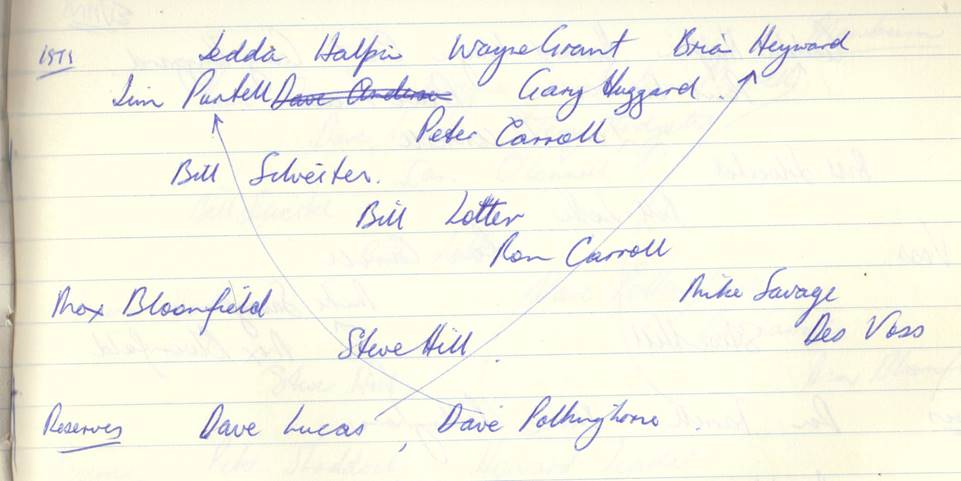 1979 Jedda Halpin Wayne Grant Brian Heyward
Jim Purtell Dave Anderson Gary Huggard.
Peter Carroll
Bill Silvester.
Bill Lotter
Ron Carroll
Mike Savage
Max Bloomfield
Des Voss
Steve Hill.
Reserves Dave Lucas, Dave Polkinghorne